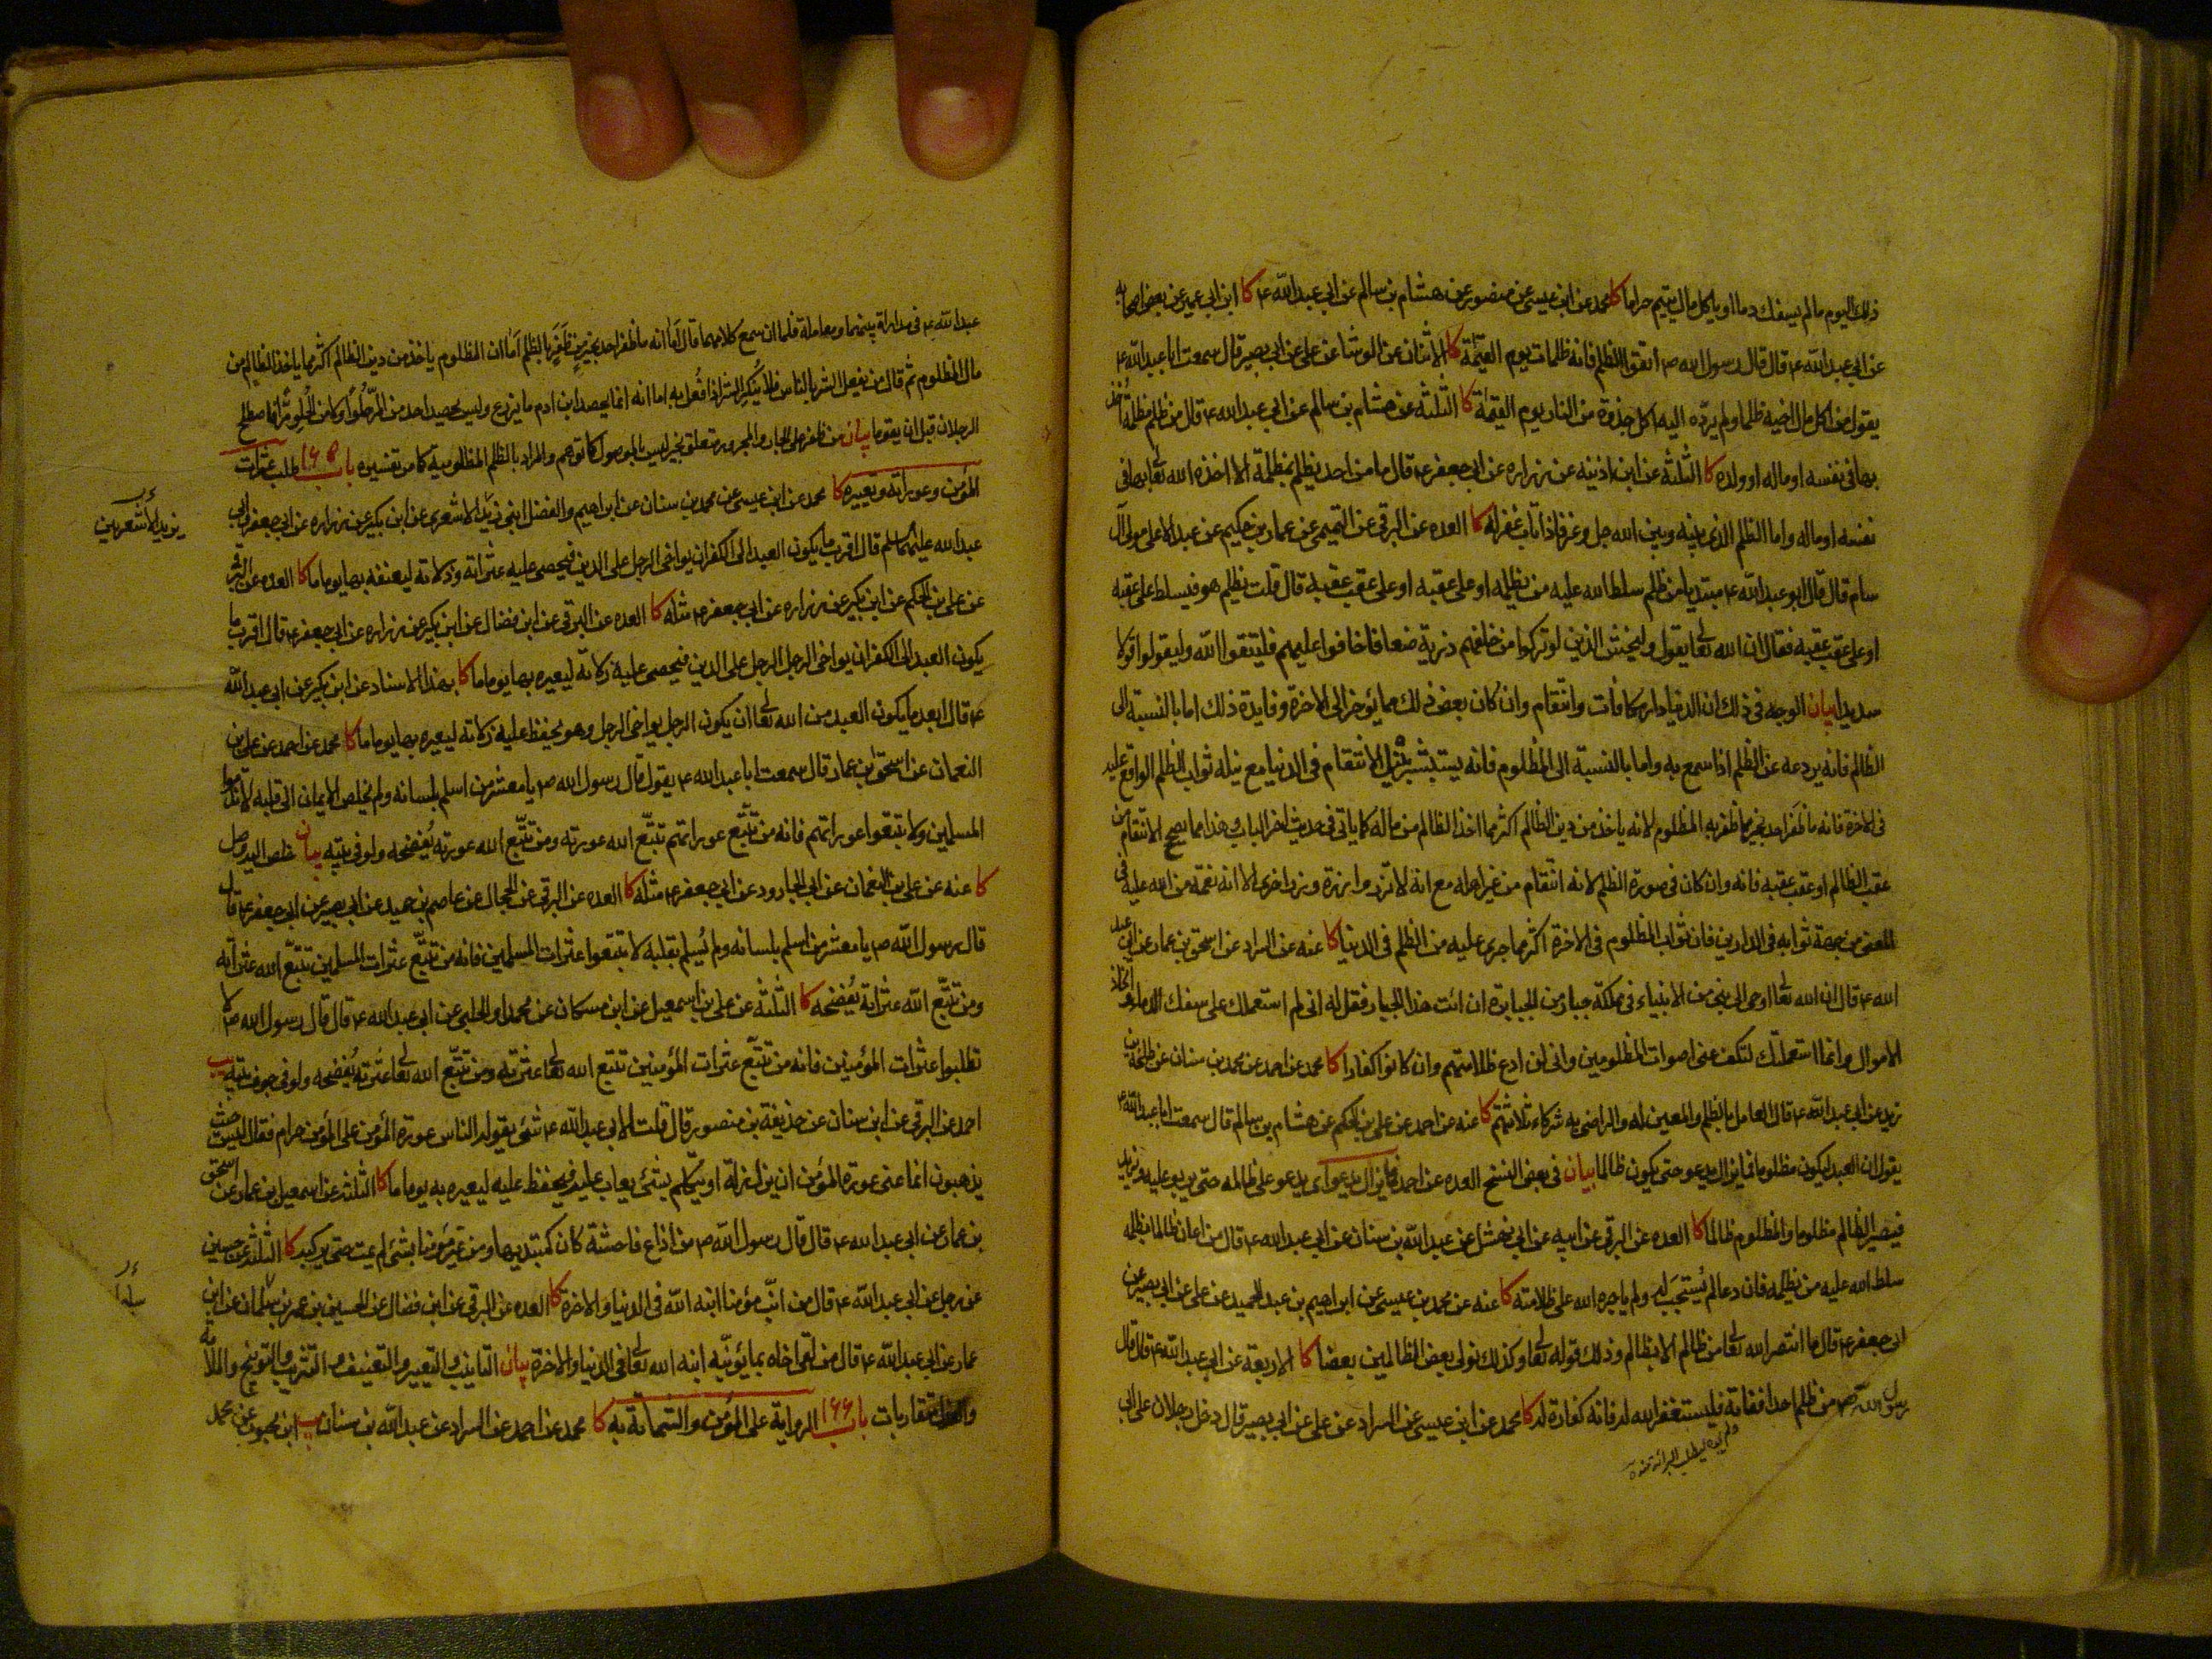 ذلك اليوم مالم يسفك دما او ياكل مال يتيم حراما كا محمد عن ابن عيسى عن منصور عن هشام بن سالم عن ابي عبد الله ع كا ابن ابي عمير عن بعض اصحابه
عن ابي عبد الله ع قال قال رسول الله ص اتقوا الظلم فانه ظلمات يوم القيمة كا الاثنان عن الوشا عن علي عن ابي بصير قال سمعت ابا عبد الله ع
يقول من اكل مال اخيه ظلما ولم يرده اليه اكل جذوة من النار يوم القيمة كا الثلثة عن هشام بن سالم عن ابي عبد الله ع قال من ظلم مظلمة اُخذ
بها في نفسه او ماله او ولده كا الثلثة عن ابن اذينه عن زراره عن ابي جعفر ع قال ما من احد يظلم بمظلمة الا اخذه الله تعا بها في
نفسه او ماله واما الظلم الذي بينه وبين الله جل وعز فاذا تاب غفر له كا العده عن البرقي عن التميمي عن عمار بن حكيم عن عبد الاعلى مولى آل
سام قال قال ابو عبد الله ع مبتديا من ظلم سلط الله عليه من يظلمه او على عقبه او على عقب عقبه قال قلت يظلم هو فيسلط على عقبه
او على عقب عقبه فقال ان الله تعا يقول وليخش الذين لو تركوا من خلفهم ذرية ضعافا خافوا عليهم فليتقوا الله وليقولوا قولا
سديدا بيان الوجه في ذلك ان الدنيا دار مكافات وانتقام وان كان بعض ذلك مما يؤخر الى الاخرة وفايدة ذلك اما بالنسبة الى
الظالم فانه يردعه عن الظلم اذا سمع به واما بالنسبة الى المظلوم فانه يستبشر بنيل الانتقام في الدنيا مع نيله ثواب الظلم الواقع عليه
في الاخرة فانه ما ظفر احد بخير مما ظفر به المظلوم لانه ياخذ من دين الظالم اكثر مما اخذ الظالم من ماله كما ياتي في حديث اخر الباب وهذا مما يصحح الانتقام من
عقب الظالم او عقب عقبه فانه وان كان في صورة الظلم لانه انتقام من غير اهله مع انه لا تزر وازرة وزر اخرى الا انه نعمة من الله عليه في
المعنى من جهة ثوابه في الدارين فان ثواب المظلوم في الاخرة اكثر مما جرى عليه من الظلم في الدنيا كا عنه عن السراد عن اسحق بن عمار عن ابي عبد
الله ع قال ان الله تعا اوحى الى نبي من الانبياء في مملكة جبار من الجبابرة ان ائت هذا الجبار فقل له اني لم استعملك على سفك الدماء واتخاذ
الاموال وانما استعملتك لتكف عني اصوات المظلومين واني لن ادع ظلامتهم وان كانوا كفارا كا محمد عن احمد عن محمد بن سنان عن طلحة بن
زيد عن ابي عبد الله ع قال العامل بالظلم والمعين له والراضي به شركاء ثلاثتهم كا عنه عن احمد عن علي بن الحكم عن هشام بن سالم قال سمعت ابا عبد الله ع
يقول ان العبد ليكون مظلوما فما يزال يدعو حتى يكون ظالما بيان في بعض النسخ العده عن احمد فما يزال يدعو اى يدعو على ظالمه حتى يربو عليه ويزيد
فيصير الظالم مظلوما والمظلوم ظالما كا العده عن البرقي عن ابيه عن ابي نهشل عن عبد الله بن سنان عن ابي عبد الله ع قال من اعان ظالما بظلمه
سلط الله عليه من يظلمه فان دعا لم يُستجَب له ولم ياجره الله على ظلامته كا عنه عن محمد بن عيسى عن ابراهيم بن عبد الحميد عن علي عن ابي بصير عن
ابي جعفر ع قال ما انتصر الله تعا من ظالم الا بظالم وذلك قوله تعا وكذلك نولي بعض الظالمين بعضا كا الاربعة عن ابي عبد الله ع قال قال
رسول الله ص من ظلم احدا ففاته فليستغفر الله له فانه كفارة له كا محمد عن ابن عيسى عن السراد عن علي عن ابي بصير قال دخل رجلان على ابي
عبد الله ع في مداراة بينهما ومعاملة فلما ان سمع كلامهما قال اَمَا انه ما ظفر احد بخير مِن ظَفَرٍ بالظلم اَمَا ان المظلوم ياخذ من دين الظالم اكثر مما ياخذ الظالم من
مال المظلوم ثم قال من يفعل الشر بالناس فلا يُنكِر الشر اذا فُعِل به اما انه انما يحصد ابن ادم ما يزرع وليس يحصد احد من المُرّ حُلُوا ولا من الحُلو مُرّا فاصطلح
الرجلان قبل ان يقوما بيان من ظفر على الجار والمجرور متعلق بخير ليس بالموصول كما توهم والمراد بالظلم المظلومية كما مر تفسيره باب ١٦٥ طلب عثرات
المؤمن وعوراته وتعييره كا محمد عن ابن عيسى عن محمد بن سنان عن ابراهيم والفضل ابني يزيد الاشعري عن ابن بكير عن زراره عن ابي جعفر وابي
يزيد الاشعريين
عبد الله عليهما السلم قال اقرب ما يكون العبد الى الكفر ان يواخي الرجل على الدين فيحصي عليه عثراته وزلاته ليعنفه بها يوما ما كا العده عن البرقي
عن علي بن الحكم عن ابن بكير عن زراره عن ابي جعفر ع مثله كا العده عن البرقي عن ابن فضال عن ابن بكير عن زراره عن ابي جعفر ع قال اقرب ما
يكون العبد الى الكفر ان يواخي الرجل الرجل على الدين فيحصي عليه زلاته ليعيره بها يوما ما كا بهذا الاسناد عن ابن بكير عن ابي عبد الله
ع قال ابعد ما يكون العبد من الله تعا ان يكون الرجل يواخي الرجل وهو يحفظ عليه زلاته ليعيره بها يوما ما كا محمد عن احمد عن علي بن
النعمان عن اسحق بن عمار قال سمعت ابا عبد الله ع يقول قال رسول الله ص يا معشر من اسلم بلسانه ولم يخلص الايمان الى قلبه لا تذموا
المسلمين ولا تتبعوا عوراتهم فانه من تتبّع عوراتهم تتبّع الله عورته ومن تتبّع الله عورته يُفضحه ولو في بيته بيان خلص اليه وصل
كا عنه عن علي بن النعمان عن ابي الجارود عن ابي جعفر ع مثله كا العده عن البرقي عن الحجال عن عاصم بن حميد عن ابي بصير عن ابي جعفر ع قال
قال رسول الله ص يا معشر من اسلم بلسانه ولم يُسلِم بقلبه لا تتبعوا عثرات المسلمين فانه من تتبّع عثرات المسلمين تتبّع الله عثراته
ومن تتبّع الله عثراته يُفضحه كا الثلثة عن علي بن اسمعيل عن ابن مسكان عن محمد او الحلبي عن ابي عبد الله ع قال قال رسول الله ص لا
تطلبوا عثرات المؤمنين فانه من تتبّع عثرات المؤمنين تتبع الله تعا عثرته ومن تتبّع الله تعا عثرته يُفضحه ولو في جوف بيته يب
احمد عن البرقي عن ابن سنان عن حذيفة بن منصور قال قلت لابي عبد الله ع شئ يقوله الناس عورة المؤمن على المؤمن حرام فقال ليس حيث
يذهبون انما عنى عورة المؤمن ان يزل زلة او يتكلم بشئ يعاب عليه فيحفظ عليه ليعيره به يوما ما كا الثلثة عن اسمعيل بن عمار عن اسحق
بن عمار عن ابي عبد الله ع قال قال رسول الله ص من اذاع فاحشة كان كمبتديها ومن عيّر مؤمنا بشئ لم يمت حتى يركبه كا الثلثة عن حسين
عن رجل عن ابي عبد الله ع قال من انّب مؤمنا انبه الله في الدنيا والاخرة كا العده عن البرقي عن ابن فضال عن الحسين بن عمر بن سليمان عن ابن
عمار عن ابي عبد الله ع قال من لقى اخاه بما يؤنّبه انبه الله تعا في الدنيا والاخرة بيان التانيب والتعيير والتعنيف والتثريب والتوبيخ والملامة
متقاربات باب ١٦٦ الرواية على المؤمن والشماتة به كا محمد عن احمد عن السراد عن عبد الله بن سنان يب ابن محبوب عن محمد